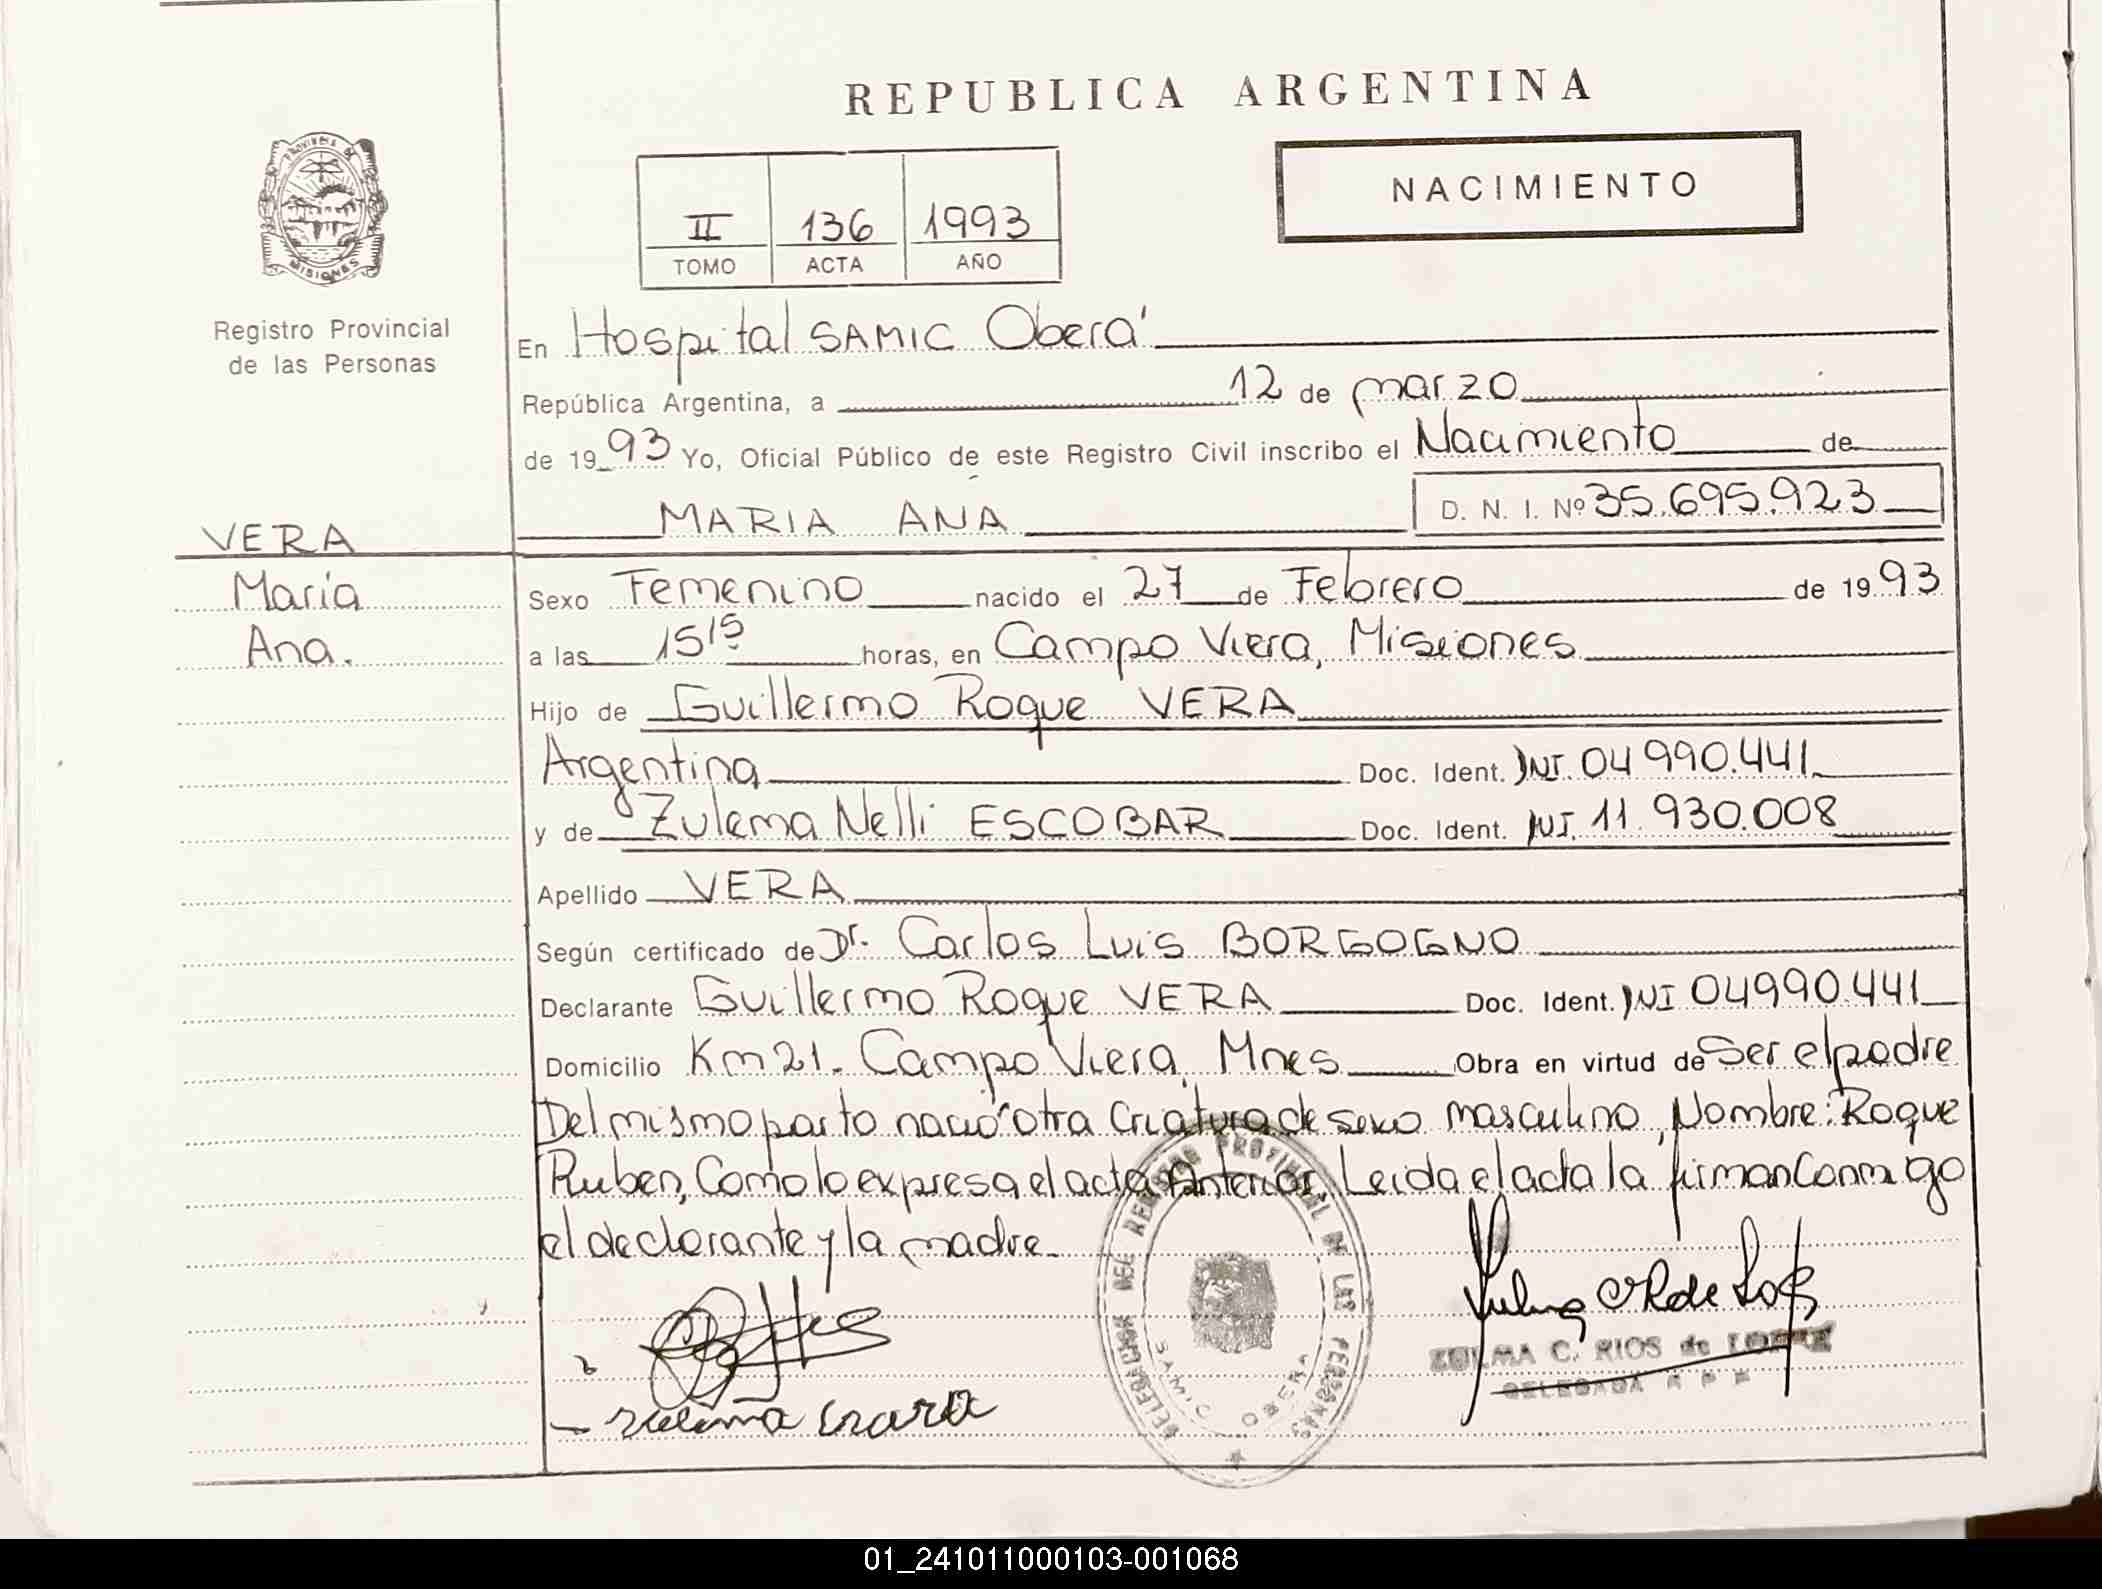 REPUBLICA ARGENTINA
NACIMIENTO
PROVINCIA DE
MISIONES
Registro Provincial
de las Personas
II 136 1993
TOMO ACTA AÑO
En Hospital SAMIC Oberá
República Argentina, a 12 de marzo
de 1993 Yo, Oficial Público de este Registro Civil inscribo el Nacimiento de
MARIA ANA D. N. I. Nº 35.695.923
VERA
María
Ana.
Sexo Femenino nacido el 27 de Febrero de 1993
a las 15 15 horas, en Campo Viera, Misiones
Hijo de Guillermo Roque VERA
Argentina Doc. Ident. DNI. 04 990.441
y de Zulema Nelli ESCOBAR Doc. Ident. DNI. 11.930.008
Apellido VERA
Según certificado de Dr. Carlos Luis BORGOGNO
Declarante Guillermo Roque VERA Doc. Ident. DNI 04990.441
Domicilio Km 21. Campo Viera, Mnes Obra en virtud de Ser el padre
Del mismo parto nació otra criatura de sexo masculino, Nombre: Roque
Ruben, Como lo expresa el acta Anterior. Leida el acta la firman conmigo
el declarante y la madre.
DELEGACION DEL REGISTRO PROVINCIAL DE LAS PERSONAS
SAMIC OBERA
ZULMA C. RIOS de
DELEGADA R P P
01_241011000103-001068